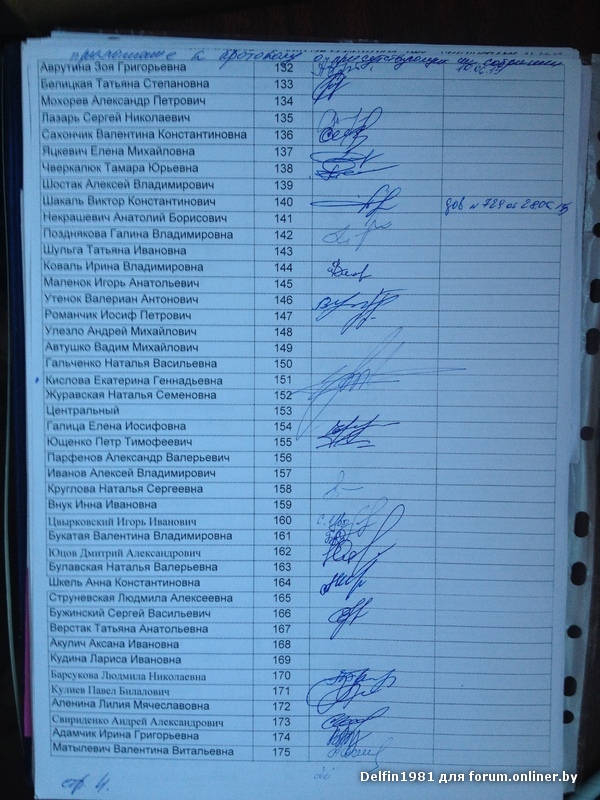 приложение к протоколу о присутствующих на собрании
Аврутина Зоя Григорьевна 132
Белицкая Татьяна Степановна 133
Мохорев Александр Петрович 134
Лазарь Сергей Николаевич 135
Сахончик Валентина Константиновна 136
Яцкевич Елена Михайловна 137
Чверкалюк Тамара Юрьевна 138
Шостак Алексей Владимирович 139
Шакаль Виктор Константинович 140 дов
Некрашевич Анатолий Борисович 141
Позднякова Галина Владимировна 142
Шульга Татьяна Ивановна 143
Коваль Ирина Владимировна 144
Маленок Игорь Анатольевич 145
Утенок Валериан Антонович 146
Романчик Иосиф Петрович 147
Улезло Андрей Михайлович 148
Автушко Вадим Михайлович 149
Гальченко Наталья Васильевна 150
Кислова Екатерина Геннадьевна 151
Журавская Наталья Семеновна 152
Центральный 153
Галица Елена Иосифовна 154
Ющенко Петр Тимофеевич 155
Парфенов Александр Валерьевич 156
Иванов Алексей Владимирович 157
Круглова Наталья Сергеевна 158
Внук Инна Ивановна 159
Цвырковский Игорь Иванович 160
Букатая Валентина Владимировна 161
Юцов Дмитрий Александрович 162
Булавская Наталья Валерьевна 163
Шкель Анна Константиновна 164
Струневская Людмила Алексеевна 165
Бужинский Сергей Васильевич 166
Верстак Татьяна Анатольевна 167
Акулич Аксана Ивановна 168
Кудина Лариса Ивановна 169
Барсукова Людмила Николаевна 170
Кулиев Павел Билалович 171
Аленина Лилия Мячеславовна 172
Свириденко Андрей Александрович 173
Адамчик Ирина Григорьевна 174
Матылевич Валентина Витальевна 175
стр. 4.
Delfin1981 для forum.onliner.by